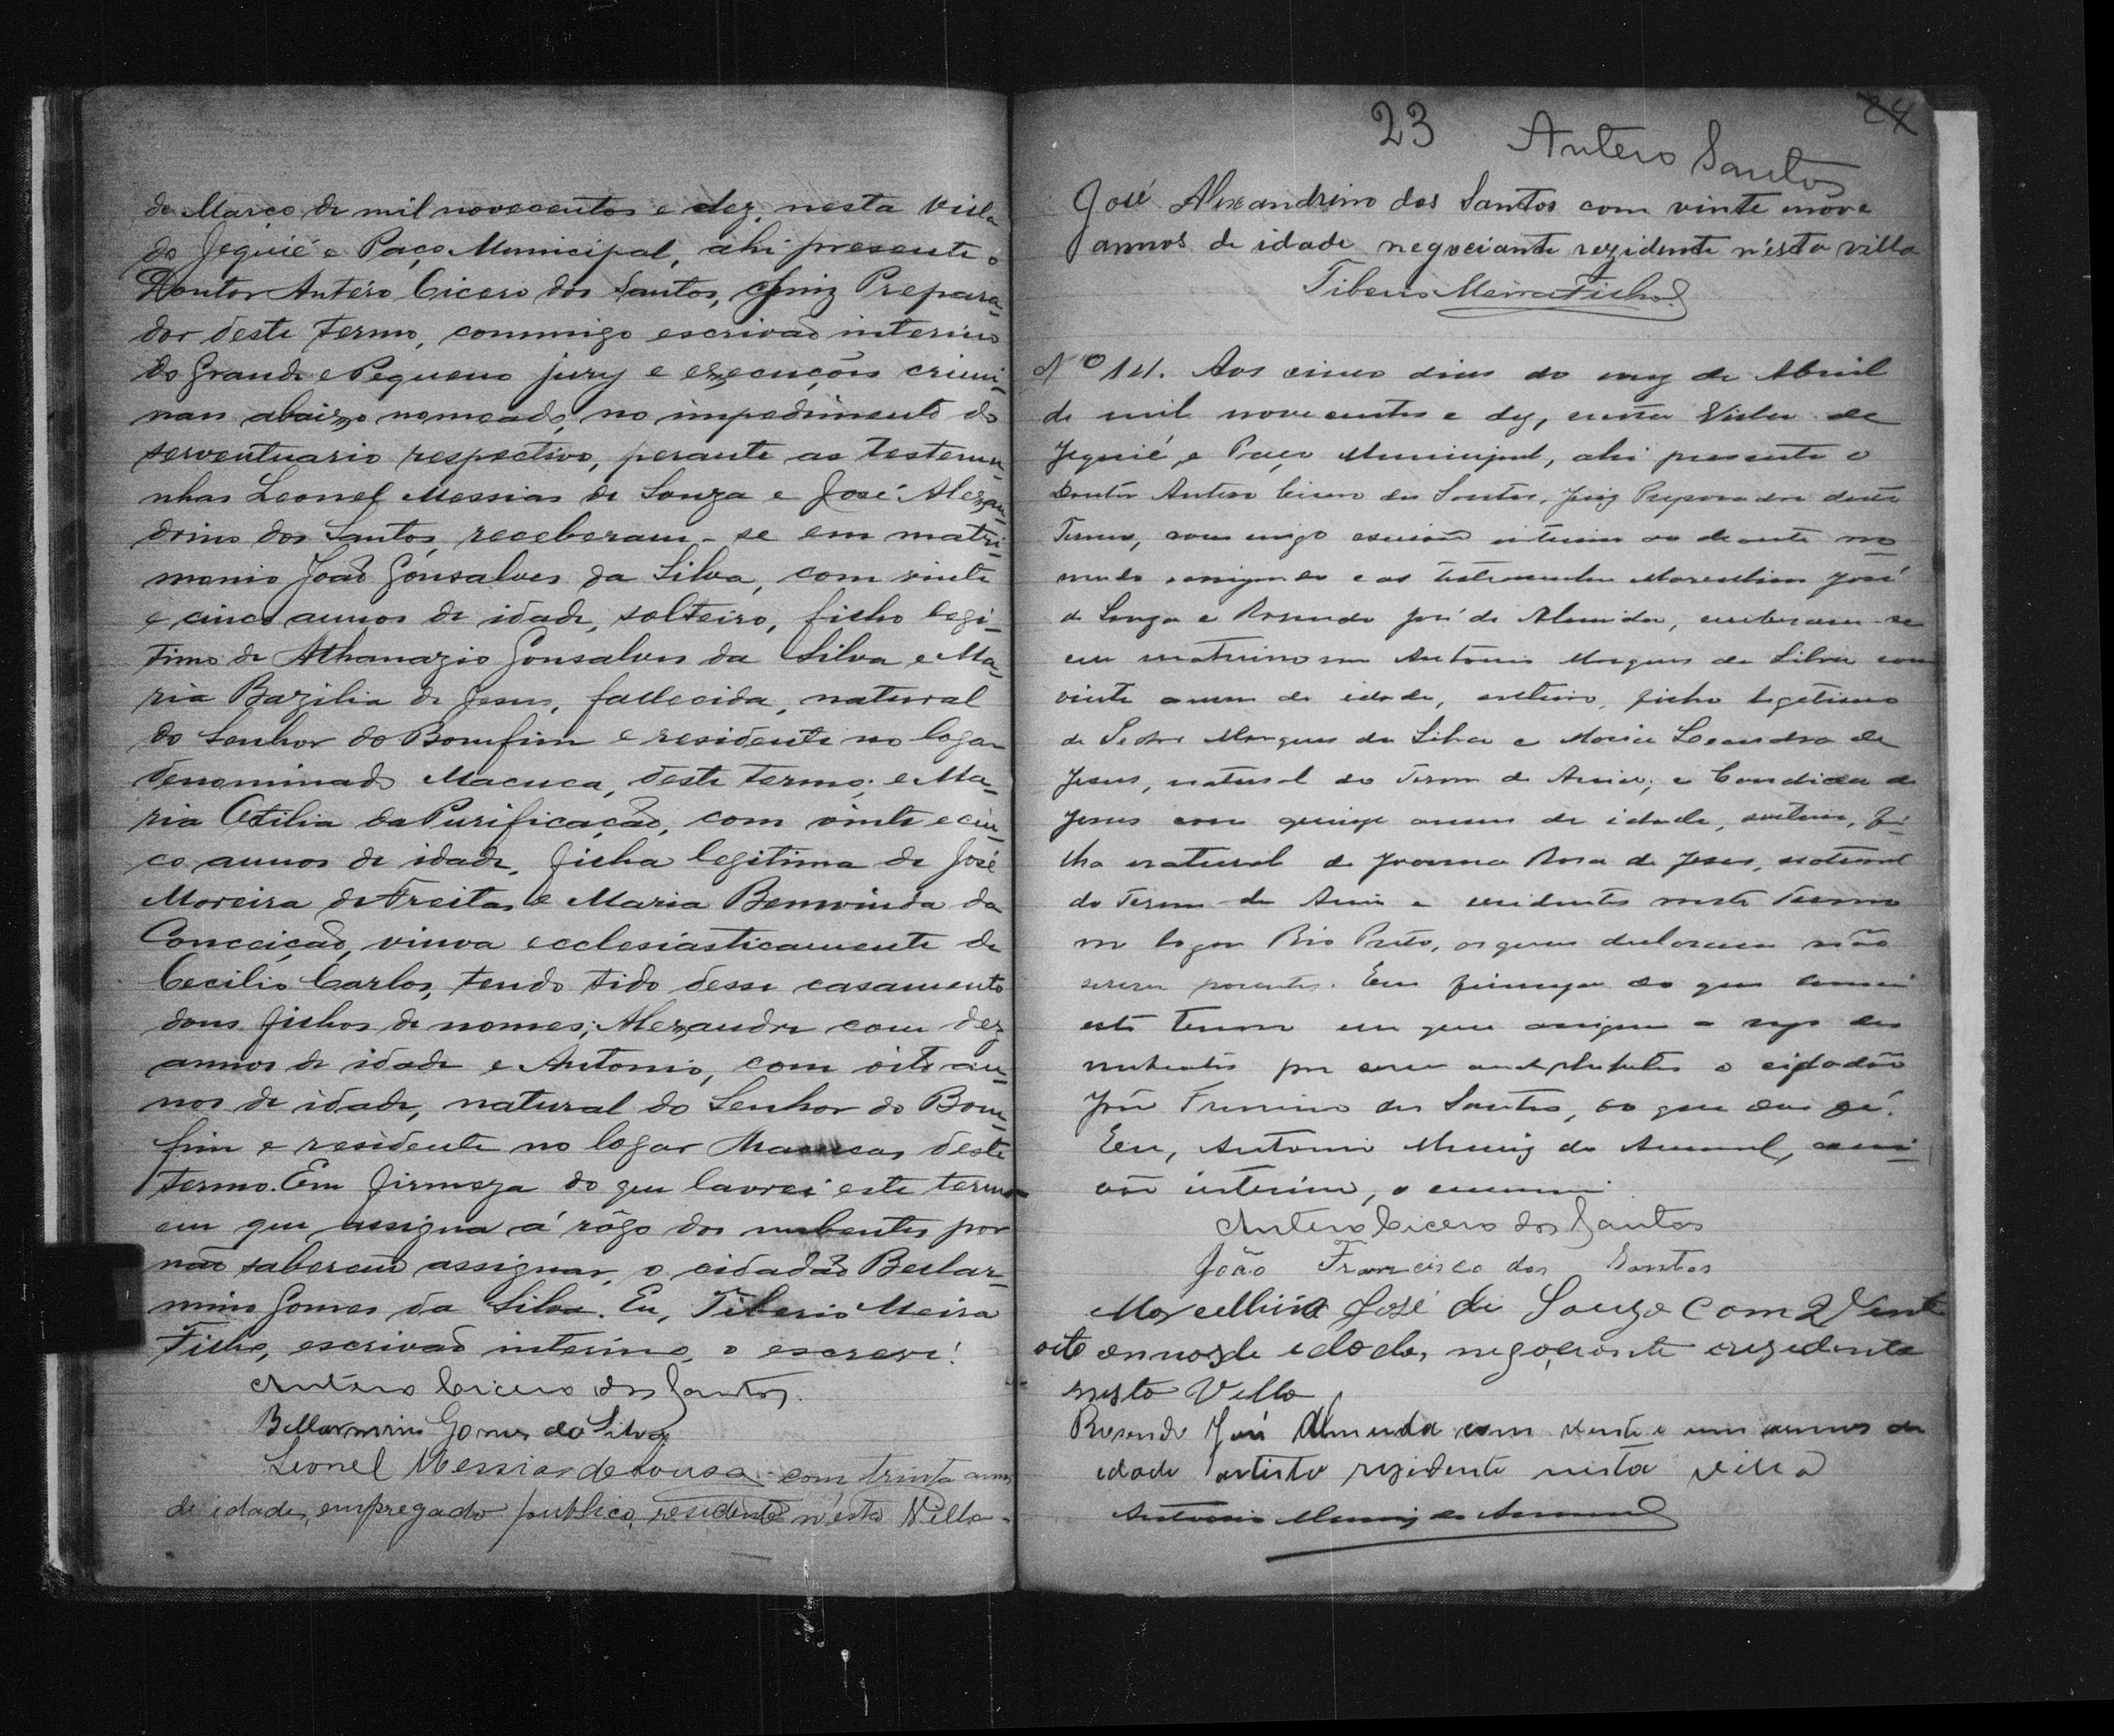 de Março de mil novecentos e dez, nesta Villa
de Jequié e Paço Municipal, ahi presente o
Doutor Antéro Cicero dos Santos, Juiz Prepara-
dor deste termo, commigo escrivão interino
do Grande e Pequeno jury e execuções crimi-
naes abaixo nomeado, no impedimento do
serventuario respectivo, perante as testemu-
nhas Leonel Messias de Souza e José Alexan-
drino dos Santos, receberam-se em matri-
monio João Gonsalves da Silva, com vinte
e cinco annos de idade, solteiro, filho legi-
timo de Athanazio Gonsalves da Silva e Ma-
ria Bazilia de Jesus, fallecida, natural
do Senhor do Bomfim e residente no logar
denominado Macuca, deste termo; e Ma-
ria Otilia da Purificação, com vinte e cin-
co annos de idade, filha legitima de José
Moreira de Freitas e Maria Bemvinda da
Conceição, viuva ecclesiasticamente de
Cecilio Carlos, tendo tido desse casamento
dous filhos de nomes; Alexandre com dez
annos de idade e Antonio, com oito an-
nos de idade, natural do Senhor do Bom-
fim e residente no logar deste
termo. Em firmeza do que lavrei este termo
em que assigna á rôgo dos nubentes por
não saberem assignar, o cidadão Bellar-
mino Gomes da Silva. Eu, Tiberio Meira
Filho, escrivão interino, o escrevi.
Antero Cicero dos Santos.
Bellarmino Gomes da Silva
Leonel Messias de Sousa com trinta annos
de idade, empregado publico, residente n'esta Villa.
23 Antero Santos
24
José Alexandrino dos Santos com vinte enove
annos de idade negociante rezidente n'esta villa
Tiberio Meira Filho
Nº 141. Aos cinco dias do mez de Abril
de mil novecentos e dez, nesta Villa de
Jequié, e Paço Municipal, ahi presente o
Doutor Antero Cicero dos Santos, Juiz Preparador deste
Termo, commigo escrivão interino ao deante no-
meado e assignado e as testemunhas Marcellino José
de Souza e Rosendo José de Almeida, receberam-se
em matrimonio Antonio Marques da Silva com
vinte annos de idade, solteiro, filho legitimo
de Pedro Marques da Silva e Maria Leandra de
Jesus, natural do Termo de ; e Candida de
Jesus com quinze annos de idade, solteira, fi-
lha natural de Joanna Rosa de Jesus, natural
do Termo de e residentes neste Termo
no logar Rio Preto, os quaes declararam não
serem parentes. Em firmeza do que lavrei
este termo em que assigna a rogo dos
nubentes por serem analphabetos o cidadão
dos Santos, do que dou fé.
Eu, Antonio Muniz do Amaral, escri-
vão interino, o escrevi
Antero Cicero dos Santos
João Francisco dos Santos
Marcellino José de Souza com 2 Vinte
oito annos de edade, negociante erezidente
nesta Villa
Rosendo José Almeida com vinte e um annos de
edade artista rezidente nesta villa
Antonio Muniz do Amaral